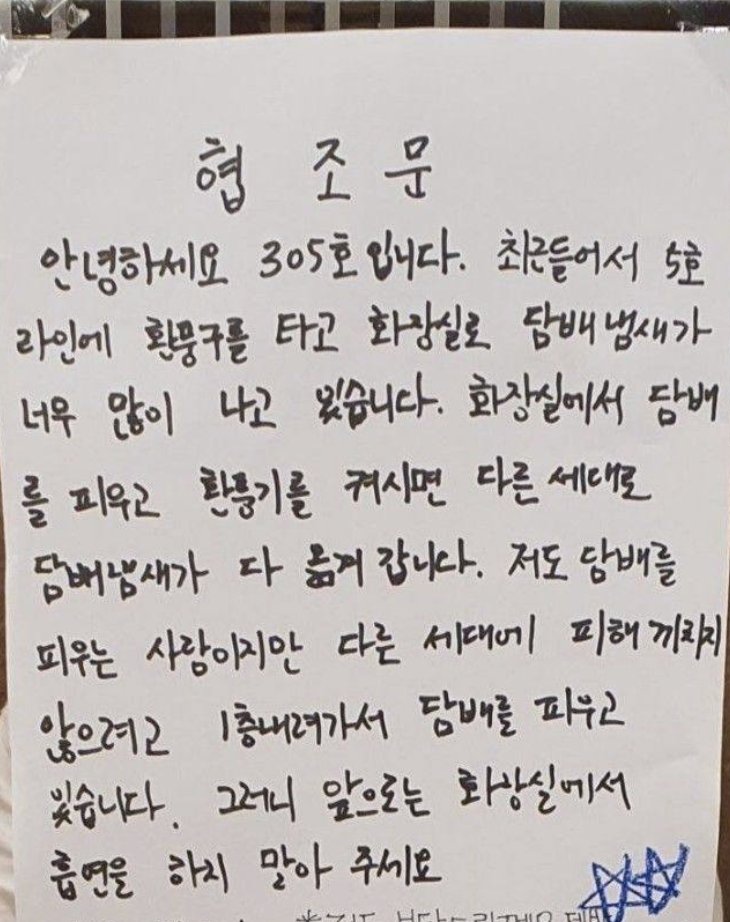 협 조 문
안녕하세요 305호입니다. 최근들어서 5호
라인에 환풍구를 타고 화장실로 담배냄새가
너무 많이 나고 있습니다. 화장실에서 담배
를 피우고 환풍기를 켜시면 다른 세대로
담배냄새가 다 옮겨 갑니다. 저도 담배를
피우는 사람이지만 다른 세대에 피해 끼치지
않으려고 1층내려가서 담배를 피우고
있습니다. 그러니 앞으로는 화장실에서
흡연을 하지 말아 주세요